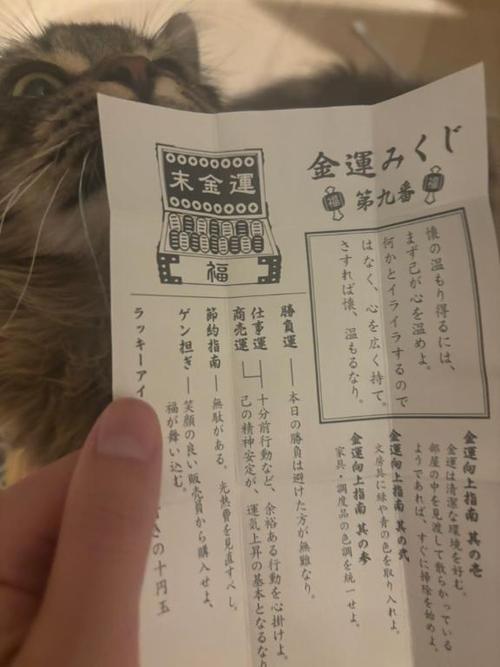 金運みくじ
第九番
末金運
福
懐の温もり得るには、
まず己が心を温めよ。
何かとイライラするので
はなく、心を広く持て。
さすれば懐、温もるなり。
金運向上指南 其の壱
金運は清潔な環境を好む。
部屋の中を見渡して散らかっている
ようであれば、すぐに掃除を始めよ。
金運向上指南 其の弐
文房具に緑や青の色を取り入れよ。
金運向上指南 其の参
家具・調度品の色調を統一せよ。
勝負運 ― 本日の勝負は避けた方が無難なり。
仕事運
商売運
十分前行動など、余裕ある行動を心掛けよ。
己の精神安定が、運気上昇の基本となるなり
節約指南 ― 無駄がある。光熱費を見直すべし。
ゲン担ぎ ― 笑顔の良い販売員から購入せよ、
福が舞い込む。
ラッキーアイ
の十円玉